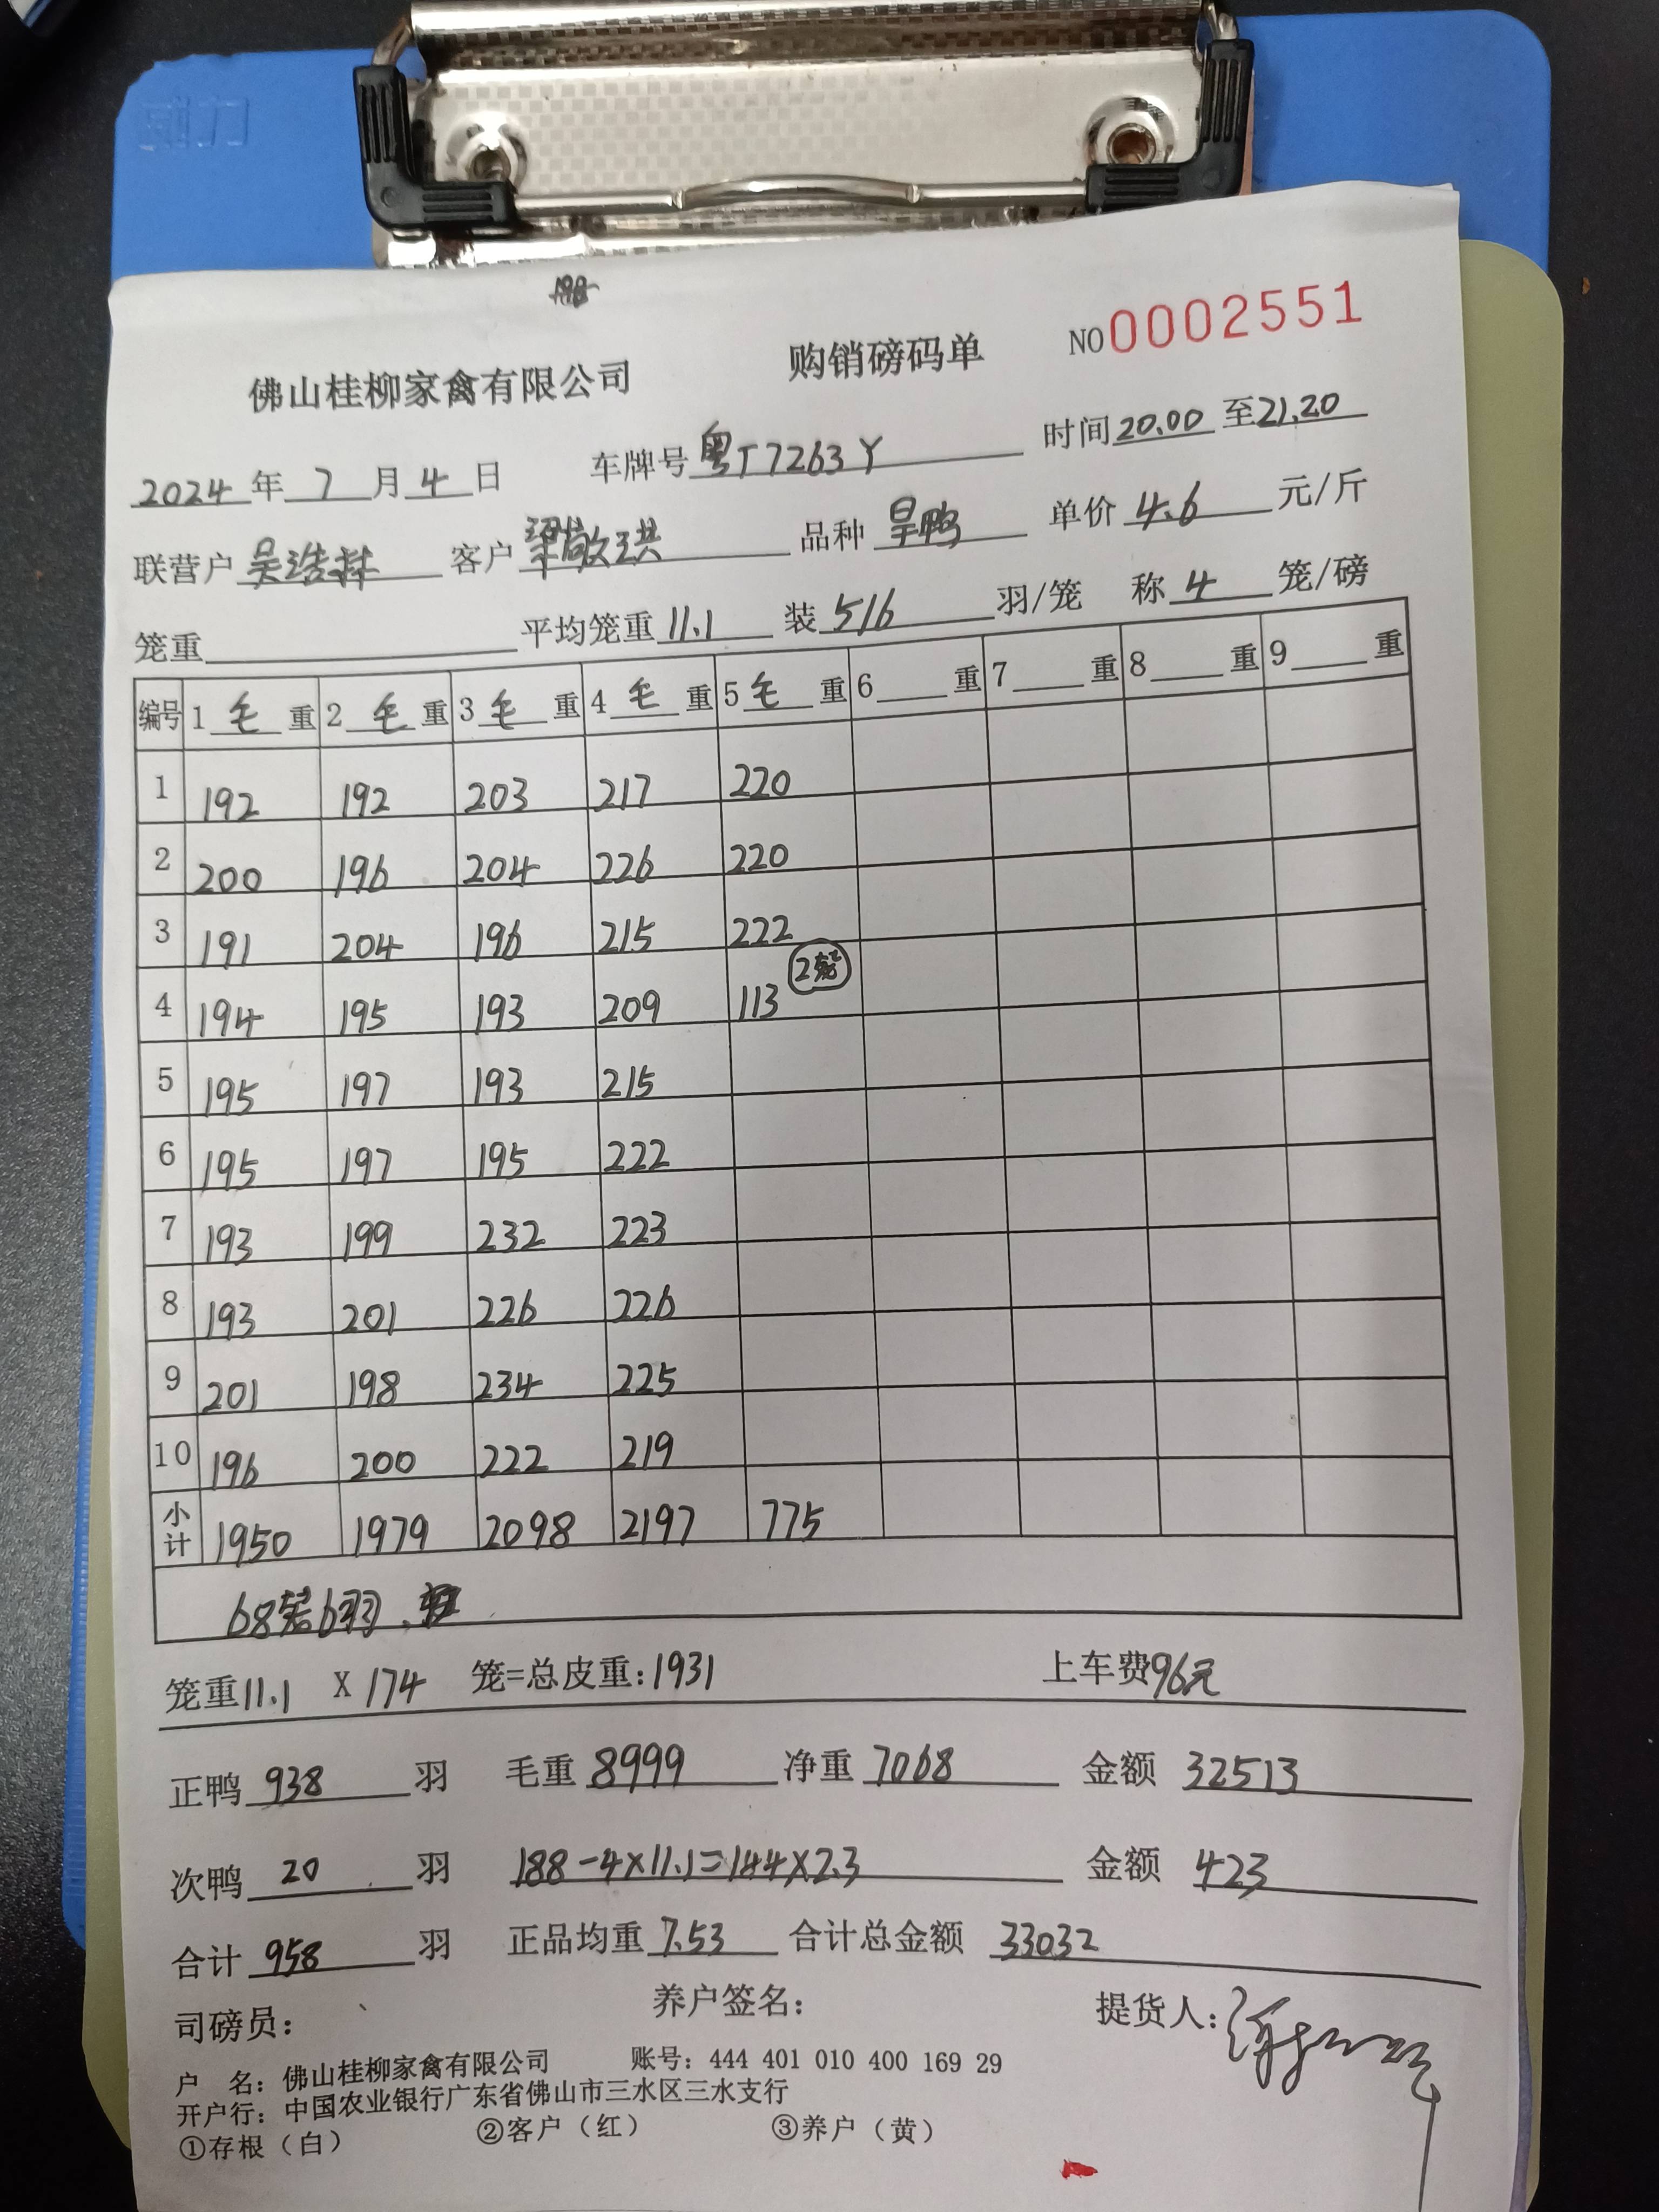 威力
佛山桂柳家禽有限公司 购销磅码单 NO 0002551
2024年7月4日 车牌号 粤T7263Y 时间 20.00 至 21.20
联营户 吴浩林 客户 梁敬琪 品种 旱鸭 单价 4.6 元/斤
笼重 平均笼重 11.1 装 5/6 羽/笼 称 4 笼/磅
编号 1 毛 重 2 毛 重 3 毛 重 4 毛 重 5 毛 重 6 重 7 重 8 重 9 重
1 192 192 203 217 220
2 200 196 204 226 220
3 191 204 196 215 222
4 194 195 193 209 113 2笼
5 195 197 193 215
6 195 197 195 222
7 193 199 232 223
8 193 201 226 226
9 201 198 234 225
10 196 200 222 219
小计 1950 1979 2098 2197 775
68笼6羽.
笼重 11.1 X 174 笼=总皮重:1931 上车费96元
正鸭 938 羽 毛重 8999 净重 7068 金额 32513
次鸭 20 羽 188-4×11.1=144×2.3 金额 423
合计 958 羽 正品均重 7.53 合计总金额 33032
司磅员: 养户签名: 提货人:
户 名: 佛山桂柳家禽有限公司 账号: 444 401 010 400 169 29
开户行: 中国农业银行广东省佛山市三水区三水支行
①存根（白） ②客户（红） ③养户（黄）